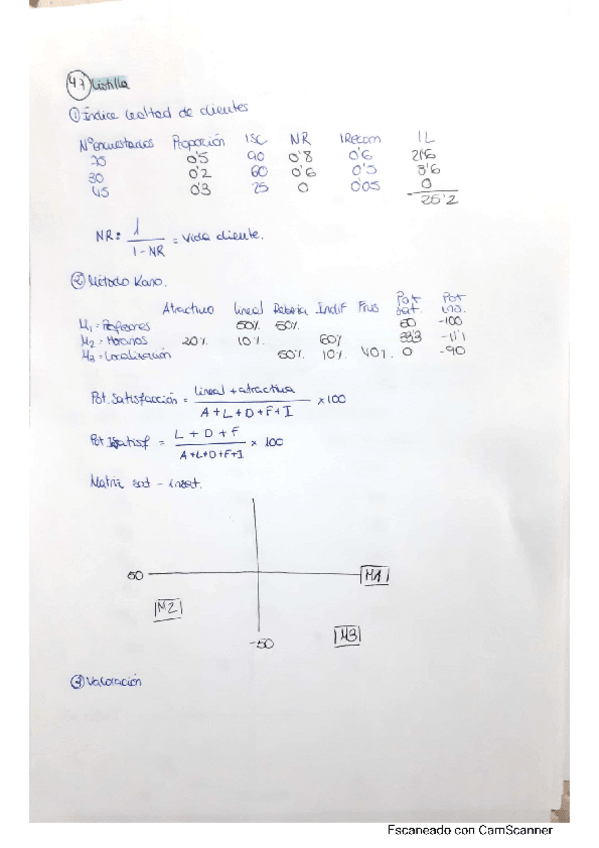 4.7 Listilla
① Índice lealtad de clientes
Nº encuestados Proporción ISC NR IRecom IL
25 0'5 90 0'8 0'6 21'6
30 0'2 60 0'6 0'5 3'6
45 0'3 25 0 0'05 0
25'2
NR: 1 / 1-NR = vida cliente.
② Método Kano.
Atractivo lineal Indif Frus Pot sat. Pot ins.
M1 = Profesores 50% 50% 50 -100
M2 = Horarios 20% 10% 60% 33'3 -11'1
M3 = Localización 10% 0 -90
Pot. Satisfacción = lineal + atractiva / A+L+D+F+I × 100
Pot = L + D + F / A+L+D+F+I × 100
Matriz sat - insat.
50 M1
M2
M3
-50
③ Valoración
Escaneado con CamScanner